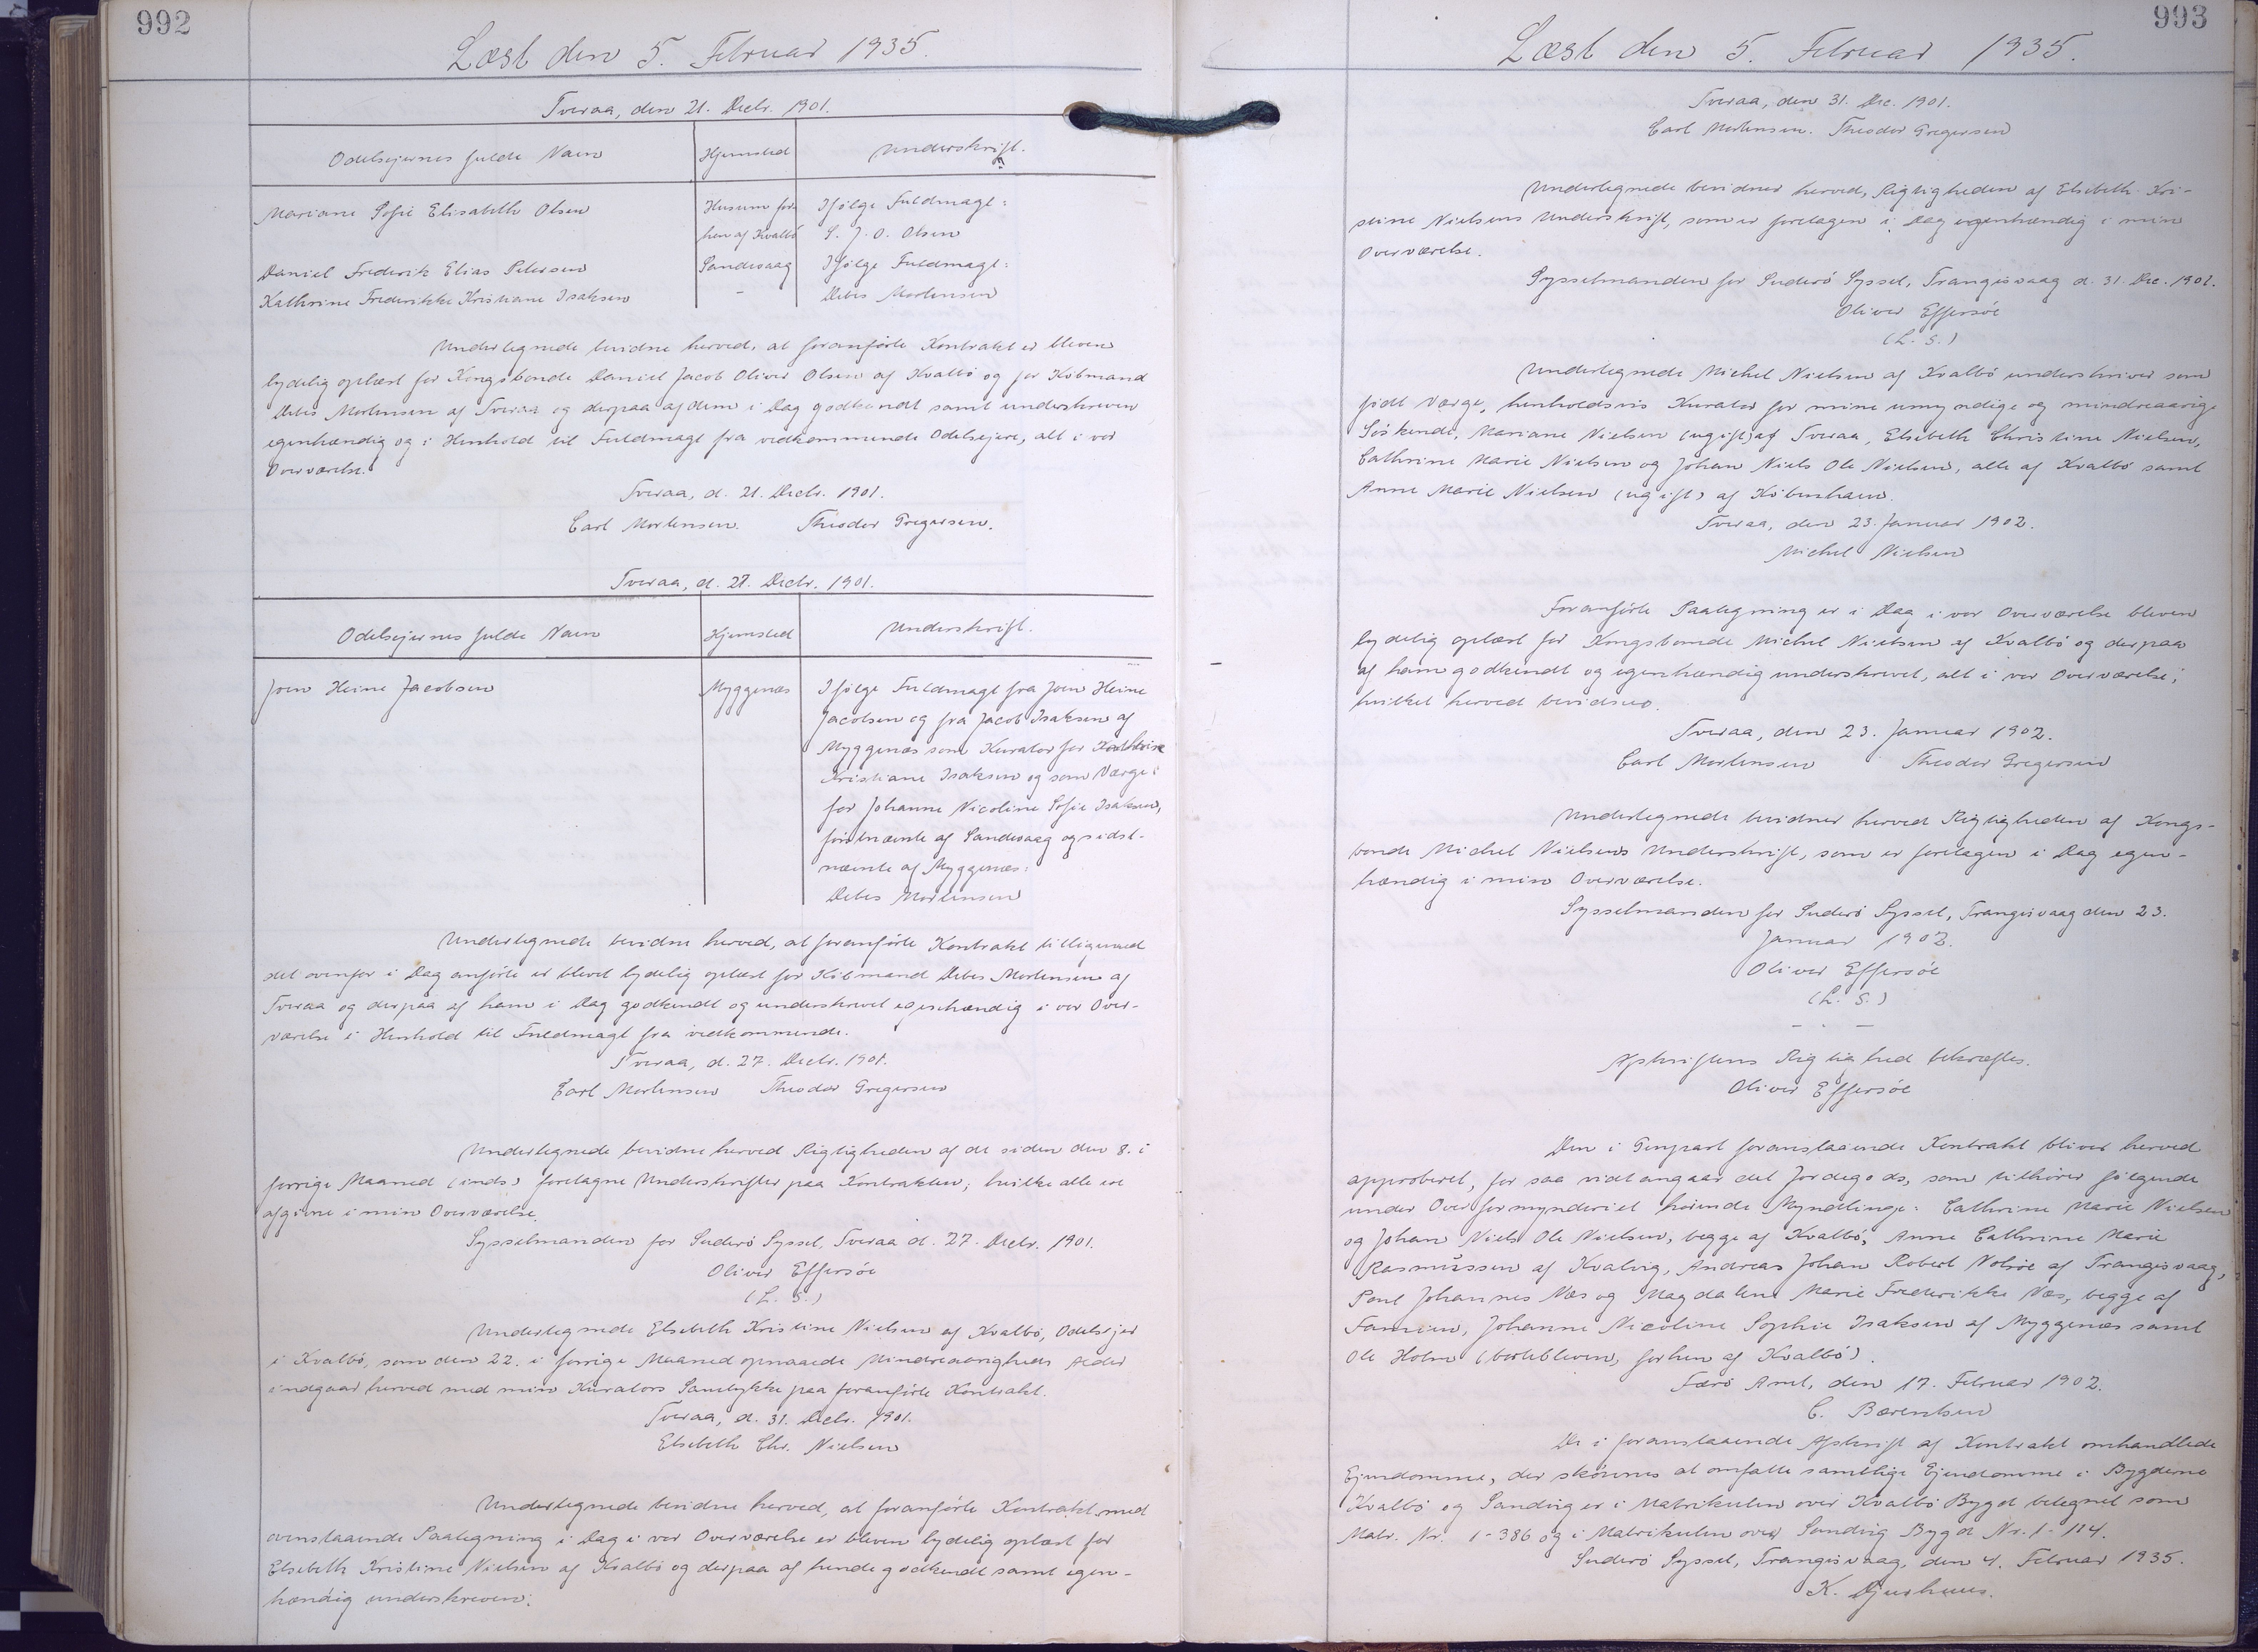 992
Læst den 5. Februar 1935.
Tveraa, den 21. Decbr. 1901.
Odelsejernes fulde Navn Hjemsted Underskrift.
Mariane Sofie Elisabeth Olsen Husum for- Ifølge Fuldmagt:
hen af Kvalbø S. J. O. Olsen
Daniel Frederik Elias Petersen Sandevaag Ifølge Fuldmagt:
Kathrine Frederikke Kristiane Isaksen - Debes Mortensen
Undertegnede bevidne herved, at foranførte Kontrakt er bleven
lydelig oplæst for Kongsbonde Daniel Jacob Oliver Olsen af Kvalbø og for Købmand
Debes Mortensen af Tveraa og derpaa af dem i Dag godkendt samt underskreven
egenhændig og i Henhold til Fuldmagt fra vedkommende Odelsejere, alt i vor
Overværelse.
Tveraa, d. 21. Decbr. 1901.
Carl Mortensen. Theodor Gregersen.
Tveraa, d. 27. Decbr. 1901.
Odelsejernes fulde Navn Hjemsted Underskrift.
Joen Heine Jacobsen Myggenæs Ifølge Fuldmagt fra Joen Heine
Jacobsen og fra Jacob Isaksen af
Myggenæs som Kurator for Kathrine
Kristiane Isaksen og som Værge
for Johanne Nicoline Sofie Isaksen,
førstnævnte af Sandevaag og sidst-
nævnte af Myggenæs:
Debes Mortensen
Undertegnede bevidne herved, at foranførte Kontrakt tilligemed
det ovenfor i Dag anførte er blevet lydelig oplæst for Købmand Debes Mortensen af
Tveraa og derpaa af ham i Dag godkendt og underskrevet egenhændig i vor Over-
værelse i Henhold til Fuldmagt fra vedkommende.
Tveraa, d. 27. Decbr. 1901.
Carl Mortensen Theodor Gregersen
Undertegnede bevidne herved Rigtigheden af de siden den 8. i
forrige Maaned (inds) foretagne Underskrifter paa Kontrakten, hvilke alle ere
afgivne i min Overværelse.
Sysselmanden for Suderø Syssel, Tveraa d. 27. Decbr. 1901.
Oliver Effersøe
(L. S.)
Undertegnede Elsebeth Kristine Nielsen af Kvalbø, Odelsejer
i Kvalbø, som den 22. i forrige Maaned opnaaede Mindreaarigheds Alder
indgaar herved med min Kurators Samtykke paa foranførte Kontrakt.
Tveraa, d. 31. Decbr. 1901.
Elsebeth Chr. Nielsen
Undertegnede bevidne herved, at foranførte Kontrakt med
ovenstaaende Paategning i Dag i vor Overværelse er bleven lydelig oplæst for
Elsebeth Kristine Nielsen af Kvalbø og derpaa af hende godkendt samt egen-
hændig underskreven.
993
Læst den 5. Februar 1935.
Tveraa, den 31. Dec. 1901.
Carl Mortensen. Theodor Gregersen
Undertegnede bevidner herved, Rigtigheden af Elsebeth Kri-
stine Nielsens Underskrift, som er foretagen i Dag egenhændig i min
Overværelse.
Sysselmanden for Suderø Syssel, Trangisvaag d. 31. Dec. 1901.
Oliver Effersøe
(L. S.)
Undertegnede Michel Nielsen af Kvalbø underskriver som
født Værge, henholdsvis Kurator for mine umyndige og mindreaarige
Søskende, Mariane Nielsen (ugift) af Tveraa, Elsebeth Christine Nielsen,
Cathrine Marie Nielsen og Johan Niels Ole Nielsen, alle af Kvalbø samt
Anne Marie Nielsen (ugift) af København.
Tveraa, den 23. Januar 1902.
Michel Nielsen
Foranførte Paategning er i Dag i vor Overværelse bleven
lydelig oplæst for Kongsbonde Michel Nielsen af Kvalbø og derpaa
af ham godkendt og egenhændig underskrevet, alt i vor Overværelse,
hvilket herved bevidnes.
Tveraa, den 23. Januar 1902.
Carl Mortensen Theodor Gregersen
Undertegnede bevidner herved Rigtigheden af Kongs-
bonde Michel Nielsens Underskrift, som er foretagen i Dag egen-
hændig i min Overværelse.
Sysselmanden for Suderø Syssel, Trangisvaag den 23.
Januar 1902.
Oliver Effersøe
(L. S.)
- . -
Afskriftens Rigtighed bekræftes.
Oliver Effersøe
Den i Genpart foranstaaende Kontrakt bliver herved
approberet, for saa vidt angaar det Jordegods, som tilhører følgende
under Overformynderiet hørende Myndlinge: Cathrine Marie Nielsen
og Johan Niels Ole Nielsen, begge af Kvalbø, Anne Cathrine Marie
Rasmussen af Kvalvig, Andreas Johan Robert Nolsøe af Trangisvaag,
Poul Johannes Næs og Magdalene Marie Frederikke Næs, begge af
Famien, Johanne Nicoline Sophie Isaksen af Myggenæs samt
Ole Holm (bortebleven, forhen af Kvalbø).
Færø Amt, den 17. Februar 1902.
C. Bærentsen
De i foranstaaende Afskrift af Kontrakt omhandlede
Ejendomme, der skønnes at omfatte samtlige Ejendomme i Bygderne
Kvalbø og Sandvig er i Matrikulen over Kvalbø Bygd betegnet som
Matr. Nr. 1-386 og i Matrikulen over Sandvig Bygd Nr. 1-114.
Suderø Syssel, Trangisvaag, den 4. Februar 1935.
K. Djurhuus.